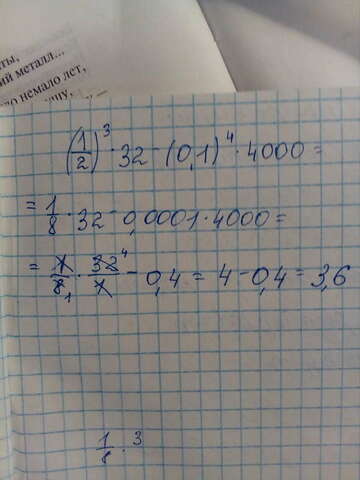 ты,
ий металл...
ло немало лет,
(1/2)³ · 32 - (0,1)⁴ · 4000 =
= 1/8 · 32 - 0,0001 · 4000 =
= 1/8 1 · 32/1 4 - 0,4 = 4 - 0,4 = 3,6
1/8 · 3